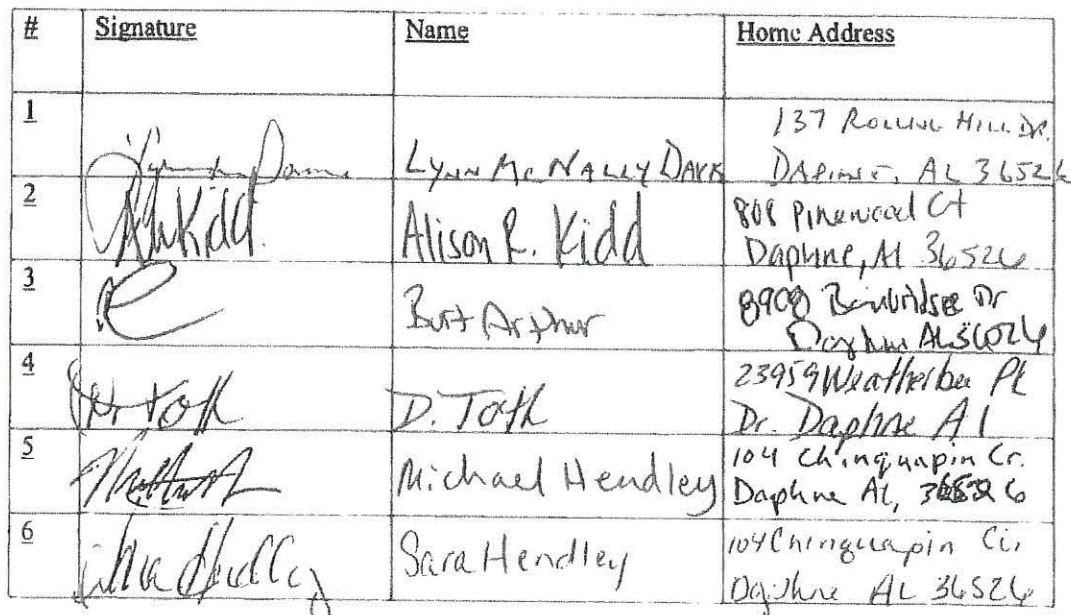 # Signature Name Home Address
1 Lynn McNally 137 Rolling Hill Dr.
Daphne, AL 36526
2 Kidd Alison R. Kidd 808 Pinewood Ct
Daphne, Al 36526
3 Burt Arthur 8908 Dr
Daphne AL
4 Toth D. Toth 23959 Weatherbee Pk
Dr. Daphne Al
5 Michael Hendley 104 Chinquapin Cr.
Daphne AL,
6 Sara Hendley 104 Chinquapin Cir
Daphne AL 36526